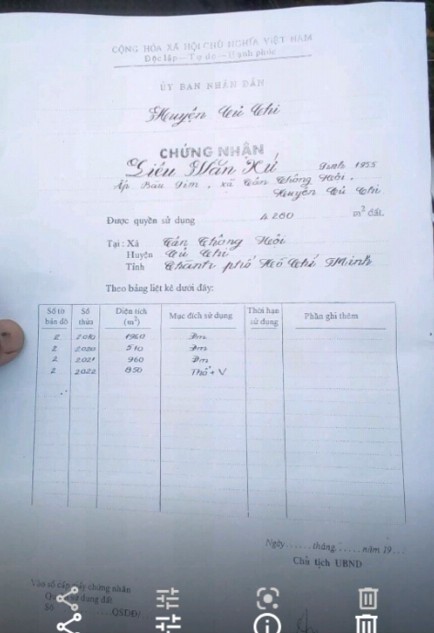 CỘNG HÒA XÃ HỘI CHỦ NGHĨA VIỆT NAM
Độc lập — Tự do — Hạnh phúc
ỦY BAN NHÂN DÂN
Huyện Củ Chi
CHỨNG NHẬN
Văn Xú Sinh 1955
Ấp Bàu Sim, xã Tân Thông Hội,
Huyện Củ Chi
Được quyền sử dụng 4 260 m² đất.
Tại: Xã Tân Thông Hội
Huyện Củ Chi
Tỉnh Thành phố Hồ Chí Minh
Theo bảng liệt kê dưới đây:
Số tờ bản đồ Số thửa Diện tích (m²) Mục đích sử dụng Thời hạn sử dụng Phần ghi thêm
2 1960
2 2020 510
2 2021 960
2 2022 850 Thổ + V
Ngày ...... tháng ...... năm 19 ...
Chủ tịch UBND
Vào sổ cấp giấy chứng nhận
Quyền sử dụng đất
Số QSDĐ/